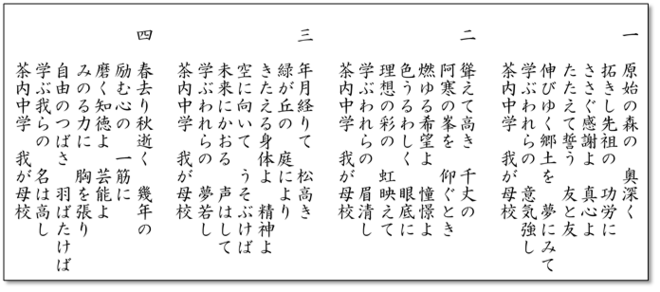 一
原始の森の　奥深く
拓きし先祖の　功労に
ささぐ感謝よ　真心よ
たたえて誓う　友と友
伸びゆく郷土を　夢にみて
学ぶわれらの　意気強し
茶内中学　我が母校
二
聳えて高き　千丈の
阿寒の峯を　仰ぐとき
燃ゆる希望よ　憧憬よ
色うるわしく　眼底に
理想の彩の　虹映えて
学ぶわれらの　眉清し
茶内中学　我が母校
三
年月経りて　松高き
緑が丘の　庭により
きたえる身体よ　精神よ
空に向いて　うそぶけば
未来にかおる　声はして
学ぶわれらの　夢若し
茶内中学　我が母校
四
春去り秋逝く　幾年の
励む心の　一筋に
磨く知徳よ　芸能よ
みのる力に　胸を張り
自由のつばさ　羽ばたけば
学ぶ我らの　名は高し
茶内中学　我が母校